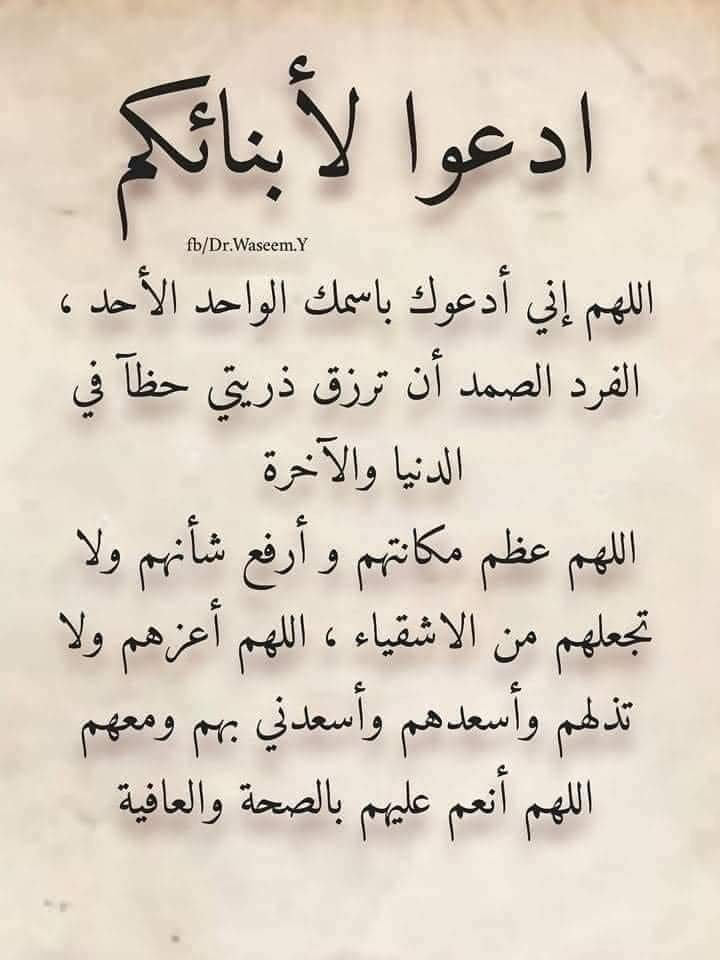 ادعوا لأبنائكم
fb/Dr.Waseem.Y
اللهم إني أدعوك باسمك الواحد الأحد ،
الفرد الصمد أن ترزق ذريتي حظآ في
الدنيا والآخرة
اللهم عظم مكانتهم و أرفع شأنهم ولا
تجعلهم من الاشقياء ، اللهم أعزهم ولا
تذلهم وأسعدهم وأسعدني بهم ومعهم
اللهم أنعم عليهم بالصحة والعافية